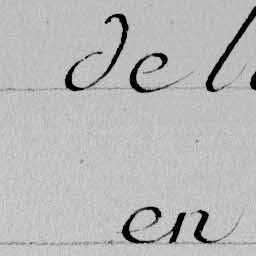 de l
en